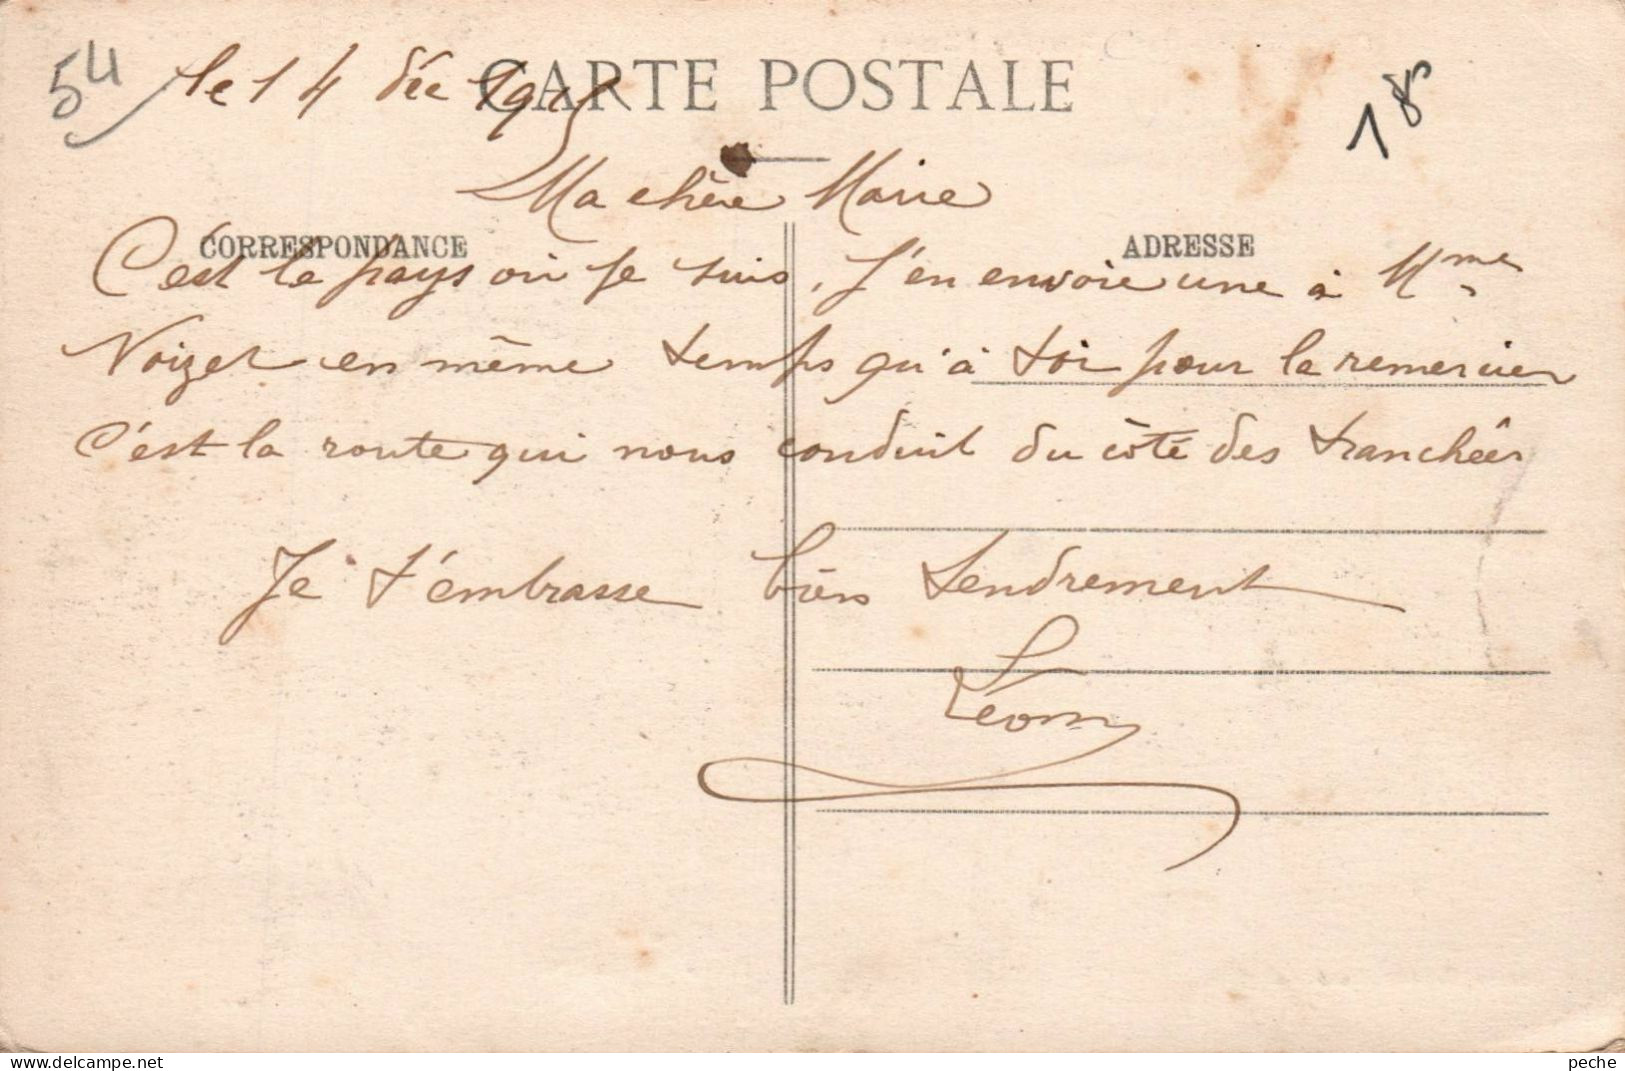 54
le 14 déc 1915
CARTE POSTALE
Ma chère Marie
CORRESPONDANCE
ADRESSE
C'est le pays où je suis, J'en envoie une à Mme
Voizel en même temps qu'à toi pour la remercier
C'est la route qui nous conduit du côté des tranchées
Je t'embrasse bien tendrement
Léon
www.delcampe.net
peche